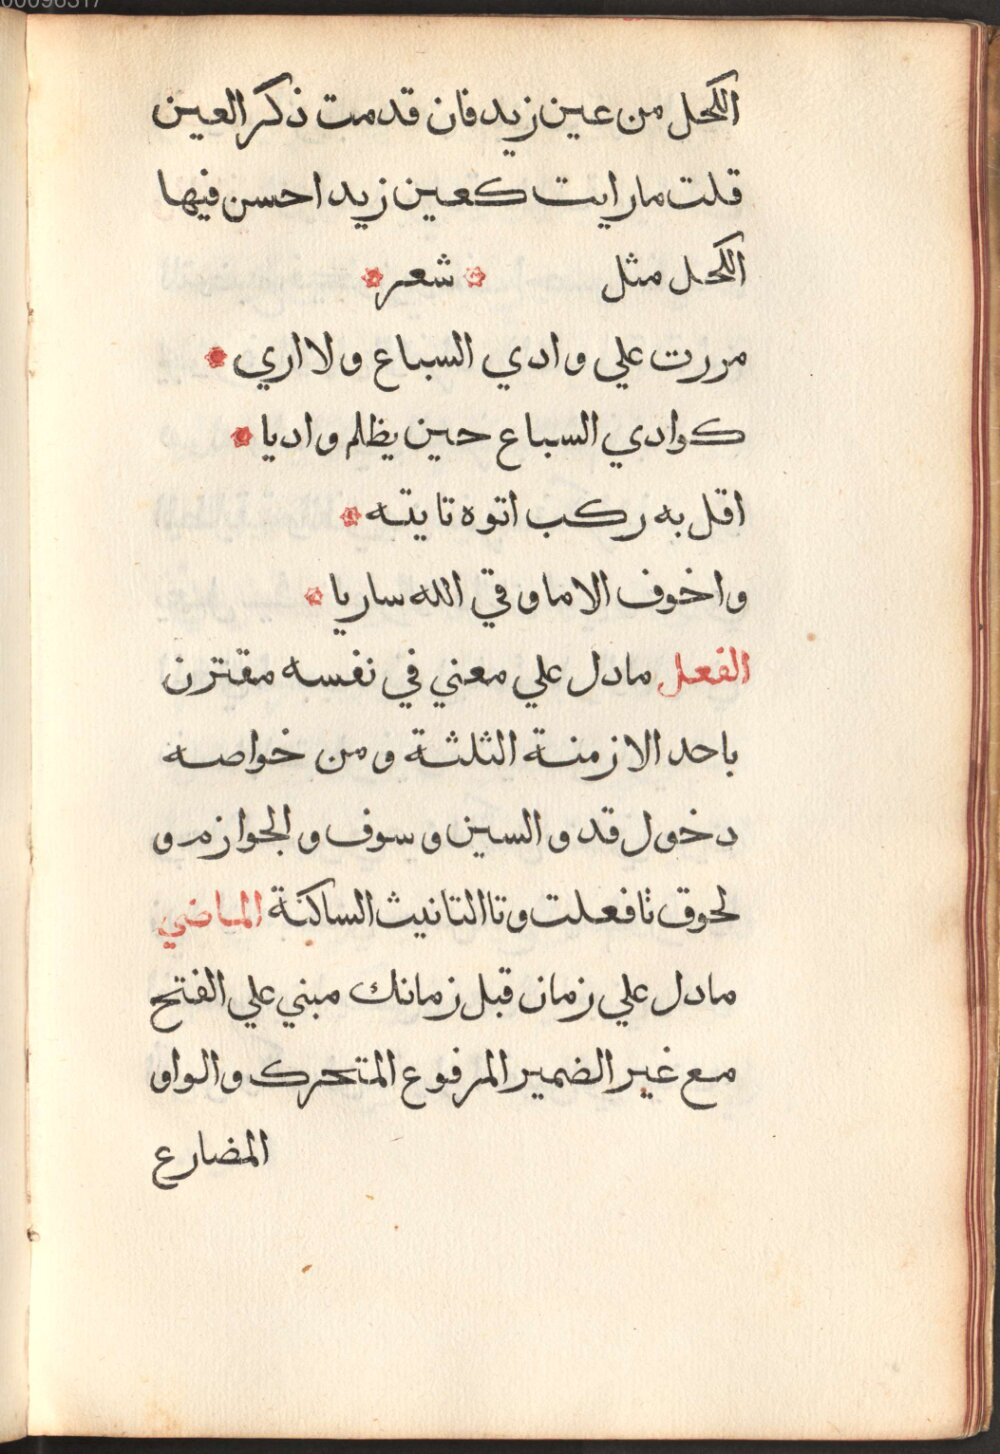 الكحل من عين زيد فان قدمت ذكر العين
قلت ما رايت كعين زيد احسن فيها
الكحل مثل شعر
مررت علي وادي السباع ولا اري
كوادي السباع حين يظلم واديا
اقل به ركب اتوه تايته
واخوف الا ما وقي الله ساريا
الفعل ما دل علي معني في نفسه مقترن
باحد الازمنة الثلثة ومن خواصه
دخول قد والسين وسوف والجوازم و
لحوق تا فعلت وتا التانيث الساكنة الماضي
ما دل علي زمان قبل زمانك مبني علي الفتح
مع غير الضمير المرفوع المتحرك والواو
المضارع